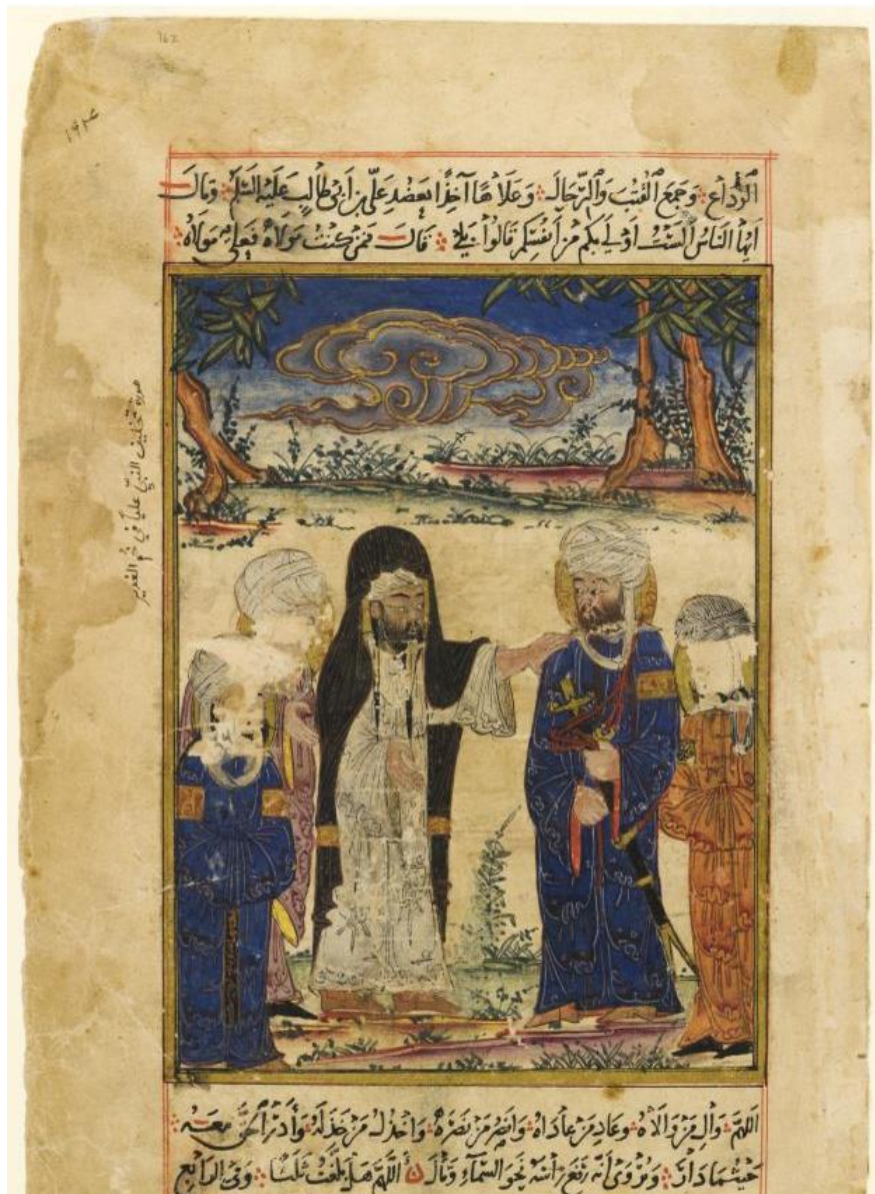 162
١٩٢٤
الوداع وَجَمَعَ القُتُبَ وَالرِّحَالَ وَعَلَاهَا آخِذًا بِعَضُدِ عَلِيِّ بنِ أَبِي طَالِبٍ عَلَيْهِ السَّلَم وَقَالَ
أيُّهَا النَاسُ أَلَسْتُ أَوْلَى بِكُم مِنْ أَنْفُسِكُمْ قَالُوا بَلَى قَالَ فَمَنْ كُنْتُ مَوْلَاهُ فَعَلِيٌّ مَوْلَاهُ
صورة تخليف النبيّ عليّاً في خُم الغدير
اللَّهُمَّ وَالِ مَنْ وَالَاهُ وَعَادِ مَنْ عَادَاهُ وَانْصُرْ مَنْ نَصَرَهُ وَاخْذُلْ مَنْ خَذَلَهُ وَأَدِرِ الْحَقَّ مَعَهُ
حَيْثُمَا دَارَ وَيُرْوَى أَنَّهُ رَفَعَ رَأْسَهُ نَحْوَ السَّمَاءِ وَقَالَ اللَّهُمَّ هَلْ بَلَّغْتُ ثَلَثًا وَفِي الرَّابِع